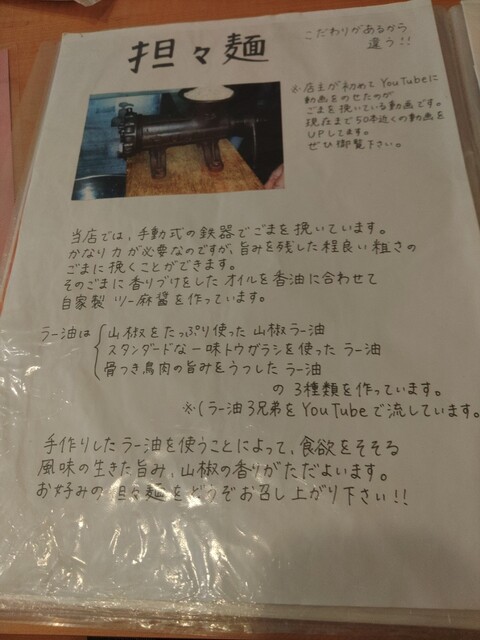 担々麺
こだわりがあるから
違う!!
※店主が初めてYouTubeに
動画をのせたのが
ごまを挽いている動画です。
現在まで50本近くの動画を
UPしてます。
ぜひ御覧下さい。
当店では、手動式の鉄器でごまを挽いています。
かなり力が必要なのですが、旨みを残した程良い粗さの
ごまに挽くことができます。
そのごまに香りづけをしたオイルを香油に合わせて
自家製 ツー麻醤を作っています。
ラー油は 山椒をたっぷり使った 山椒ラー油
スタンダードな一味トウガラシを使った ラー油
骨つき鳥肉の旨みをうつした ラー油
の 3種類を作っています。
※(ラー油3兄弟をYouTubeで流しています。
手作りしたラー油を使うことによって、食欲をそそる
風味の生きた旨み、山椒の香りがただよいます。
お好みの担々麺をどうぞお召し上がり下さい!!